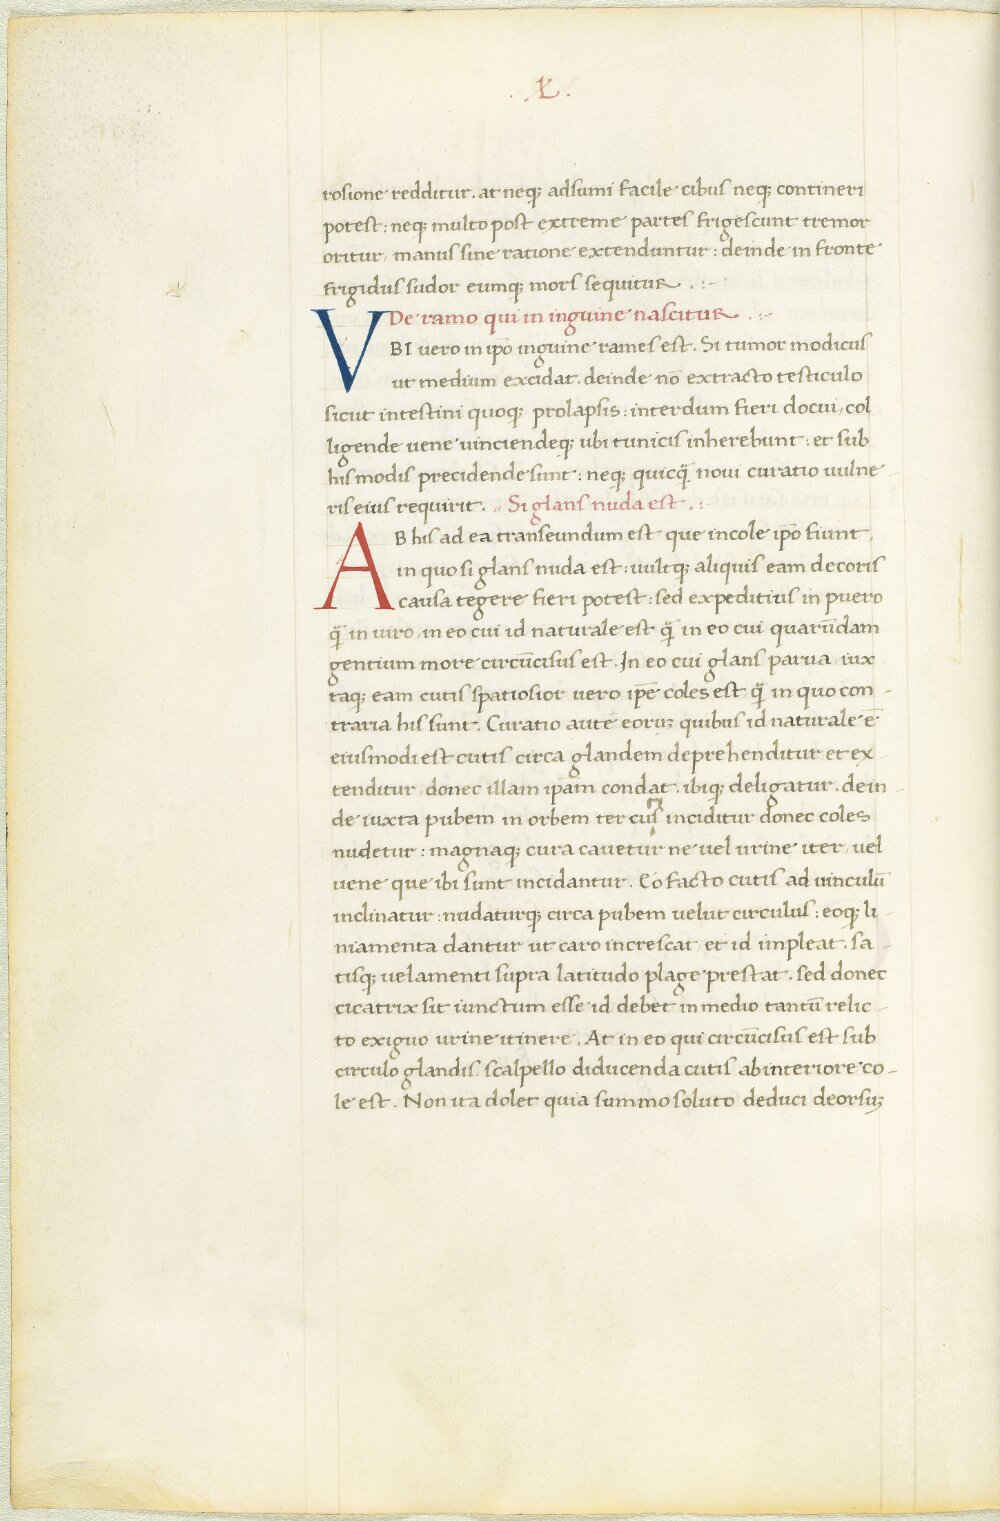 .X.
rosione redditur. at neq; adsumi facile cibus neq; contineri
potest: neq; multo post extreme partes frigescunt tremor
oritur, manus sine ratione extenduntur: deinde in fronte
frigidus sudor eumq; mors sequitur .:-
De ramo qui in inguine nascitur .:-
VBI vero in ip̄o inguine rames est. Si tumor modicus
ut medium excidat. deinde nō extracto testiculo
sicut intestini quoq; prolapsis: interdum fieri docui, col
ligende uene uinciendeq; ubi tunicis inherebunt: et sub
his modis precidende sunt: neq; quicq̄ noui curatio uulne
ris eius requirit. Si glans nuda est .:-
AB his ad ea transeundum est que in cole ip̄o fiunt,
in quo si glans nuda est: uultq; aliquis eam decoris
causa tegere fieri potest: sed expeditius in puero
q̄ in uiro, in eo cui id naturale est q̄ in eo cui quarūdam
gentium more circūcisus est. In eo cui glans parua, iux
taq; eam cutis spatiosior vero ip̄e coles est q̄ in quo con-
traria his sunt. Curatio autē eoruꝫ quibus id naturale ē
eiusmodi est cutis circa glandem deprehenditur et ex-
tenditur, donec illam ip̄am condat. ibiq; deligatur. dein-
de iuxta pubem in orbem ter cus inciditur donec coles
nudetur: magnaq; cura cauetur ne vel urine iter, vel
uene que ibi sunt incidantur. Eo facto cutis ad uinculū
inclinatur: nudaturq; circa pubem uelut circulus: eoq; li-
niamenta dantur ut caro increscat et id impleat. sa-
tisq; uelamenti supra latitudo plage prestat. sed donec
cicatrix sit iunctum esse id debet in medio tantū relic-
to exiguo urine itinere. At in eo qui circūcisus est sub
circulo glandis. scalpello diducenda cutis ab interiore co-
le est. Non ita dolet quia summo soluto deduci deorsuꝫ